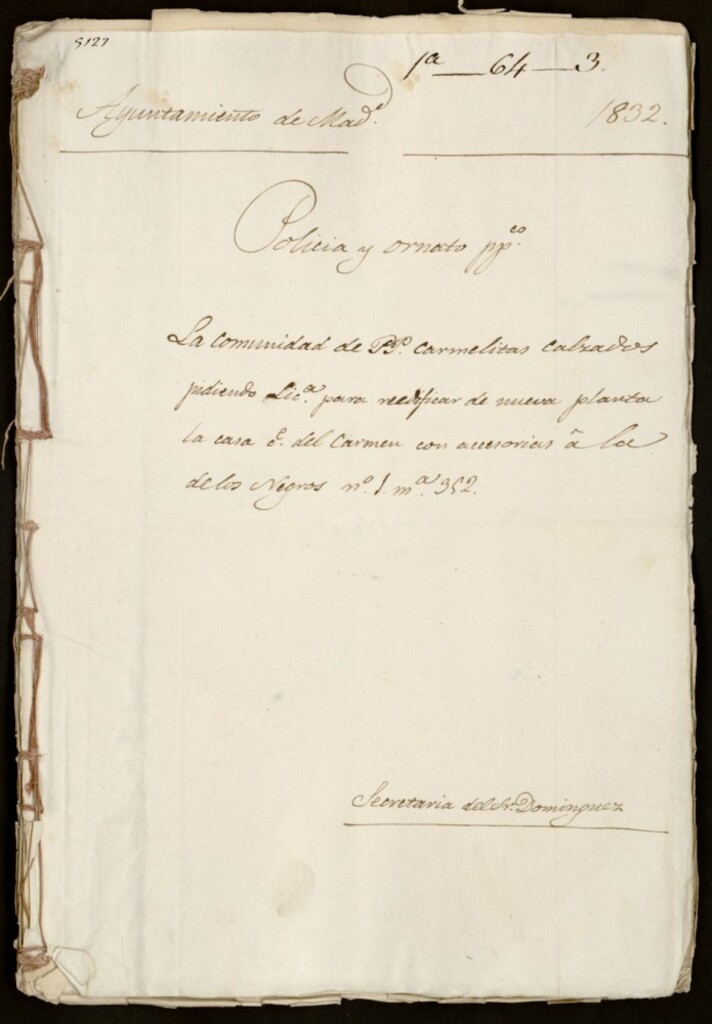 5127
1ª—64—3.
Ayuntamiento de Madᵈ.
1832.
Policia y ornato ppᶜᵒ.
La comunidad de PP. Carmelitas calzados
pidiendo Licᵃ. para reedificar de nueva planta
la casa c. del Carmen con accesorias â la
de los Negros nº. 1. mᵃ. 352.
Secretaria del Sr. Dominguez